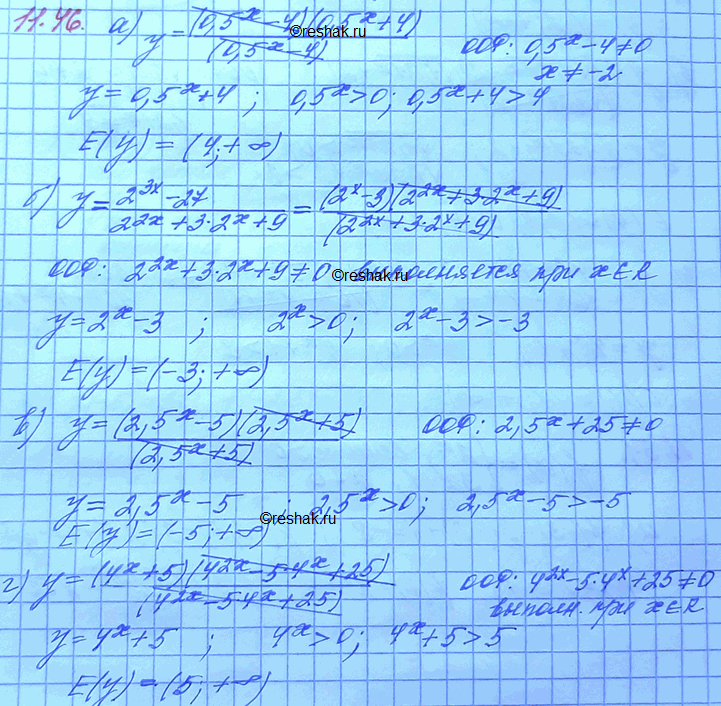 11.46. а) y = (0,5^x - 4)(0,5^x + 4) / (0,5^x - 4) ООФ: 0,5^x - 4 ≠ 0
x ≠ -2
©reshak.ru
y = 0,5^x + 4 ; 0,5^x > 0; 0,5^x + 4 > 4
E(y) = (4; +∞)
б) y = (2^{3x} - 27) / (2^{2x} + 3·2^x + 9) = (2^x - 3)(2^{2x} + 3·2^x + 9) / (2^{2x} + 3·2^x + 9)
ООФ: 2^{2x} + 3·2^x + 9 ≠ 0 выполняется при x ∈ R
©reshak.ru
y = 2^x - 3 ; 2^x > 0; 2^x - 3 > -3
E(y) = (-3; +∞)
в) y = (2,5^x - 5)(2,5^x + 5) / (2,5^x + 5) ООФ: 2,5^x + 25 ≠ 0
y = 2,5^x - 5 ; 2,5^x > 0; 2,5^x - 5 > -5
©reshak.ru
E(y) = (-5; +∞)
г) y = (4^x + 5)(4^{2x} - 5·4^x + 25) / (4^{2x} - 5·4^x + 25) ООФ: 4^{2x} - 5·4^x + 25 ≠ 0
выполн. при x ∈ R
y = 4^x + 5 ; 4^x > 0; 4^x + 5 > 5
E(y) = (5; +∞)